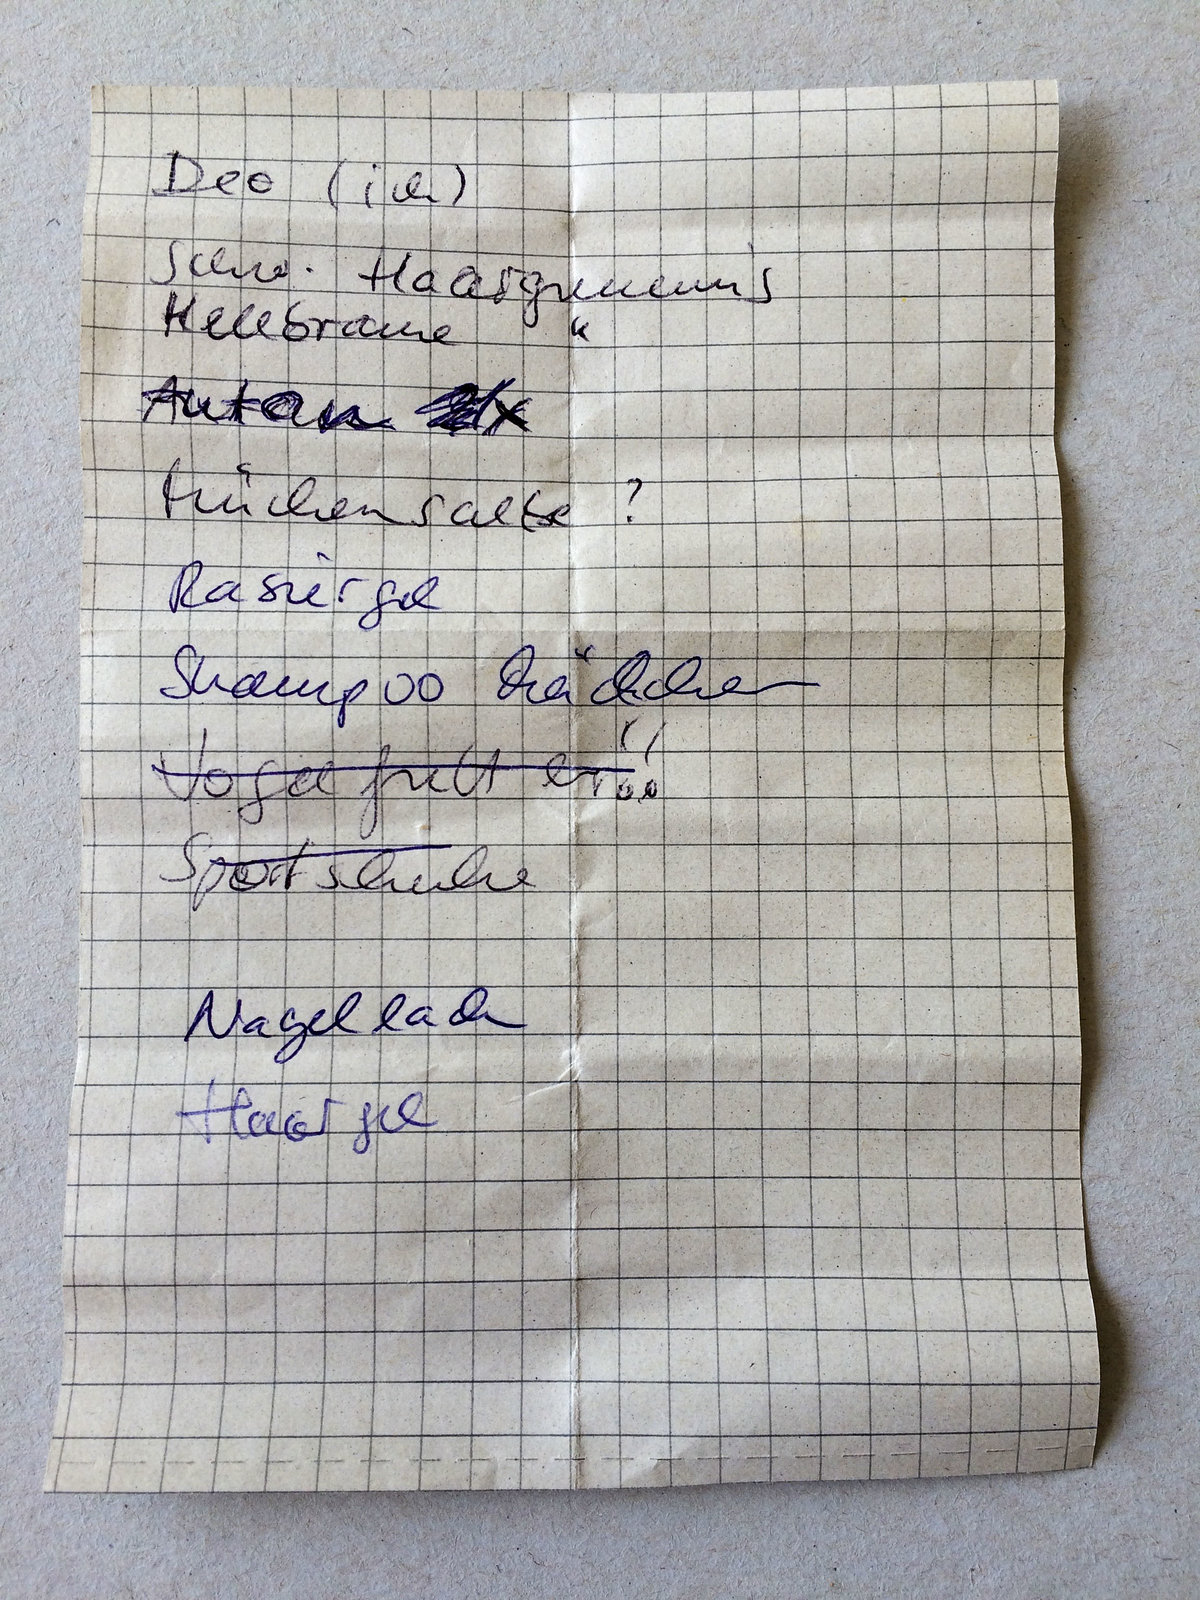 Deo (ich)
Schw. Haargummis
Hellbraune "
Autan
Mückensalbe ?
Rasiergel
Shampoo Mädchen
Vogelfutter!!
Sportschuhe
Nagellack
Haargel